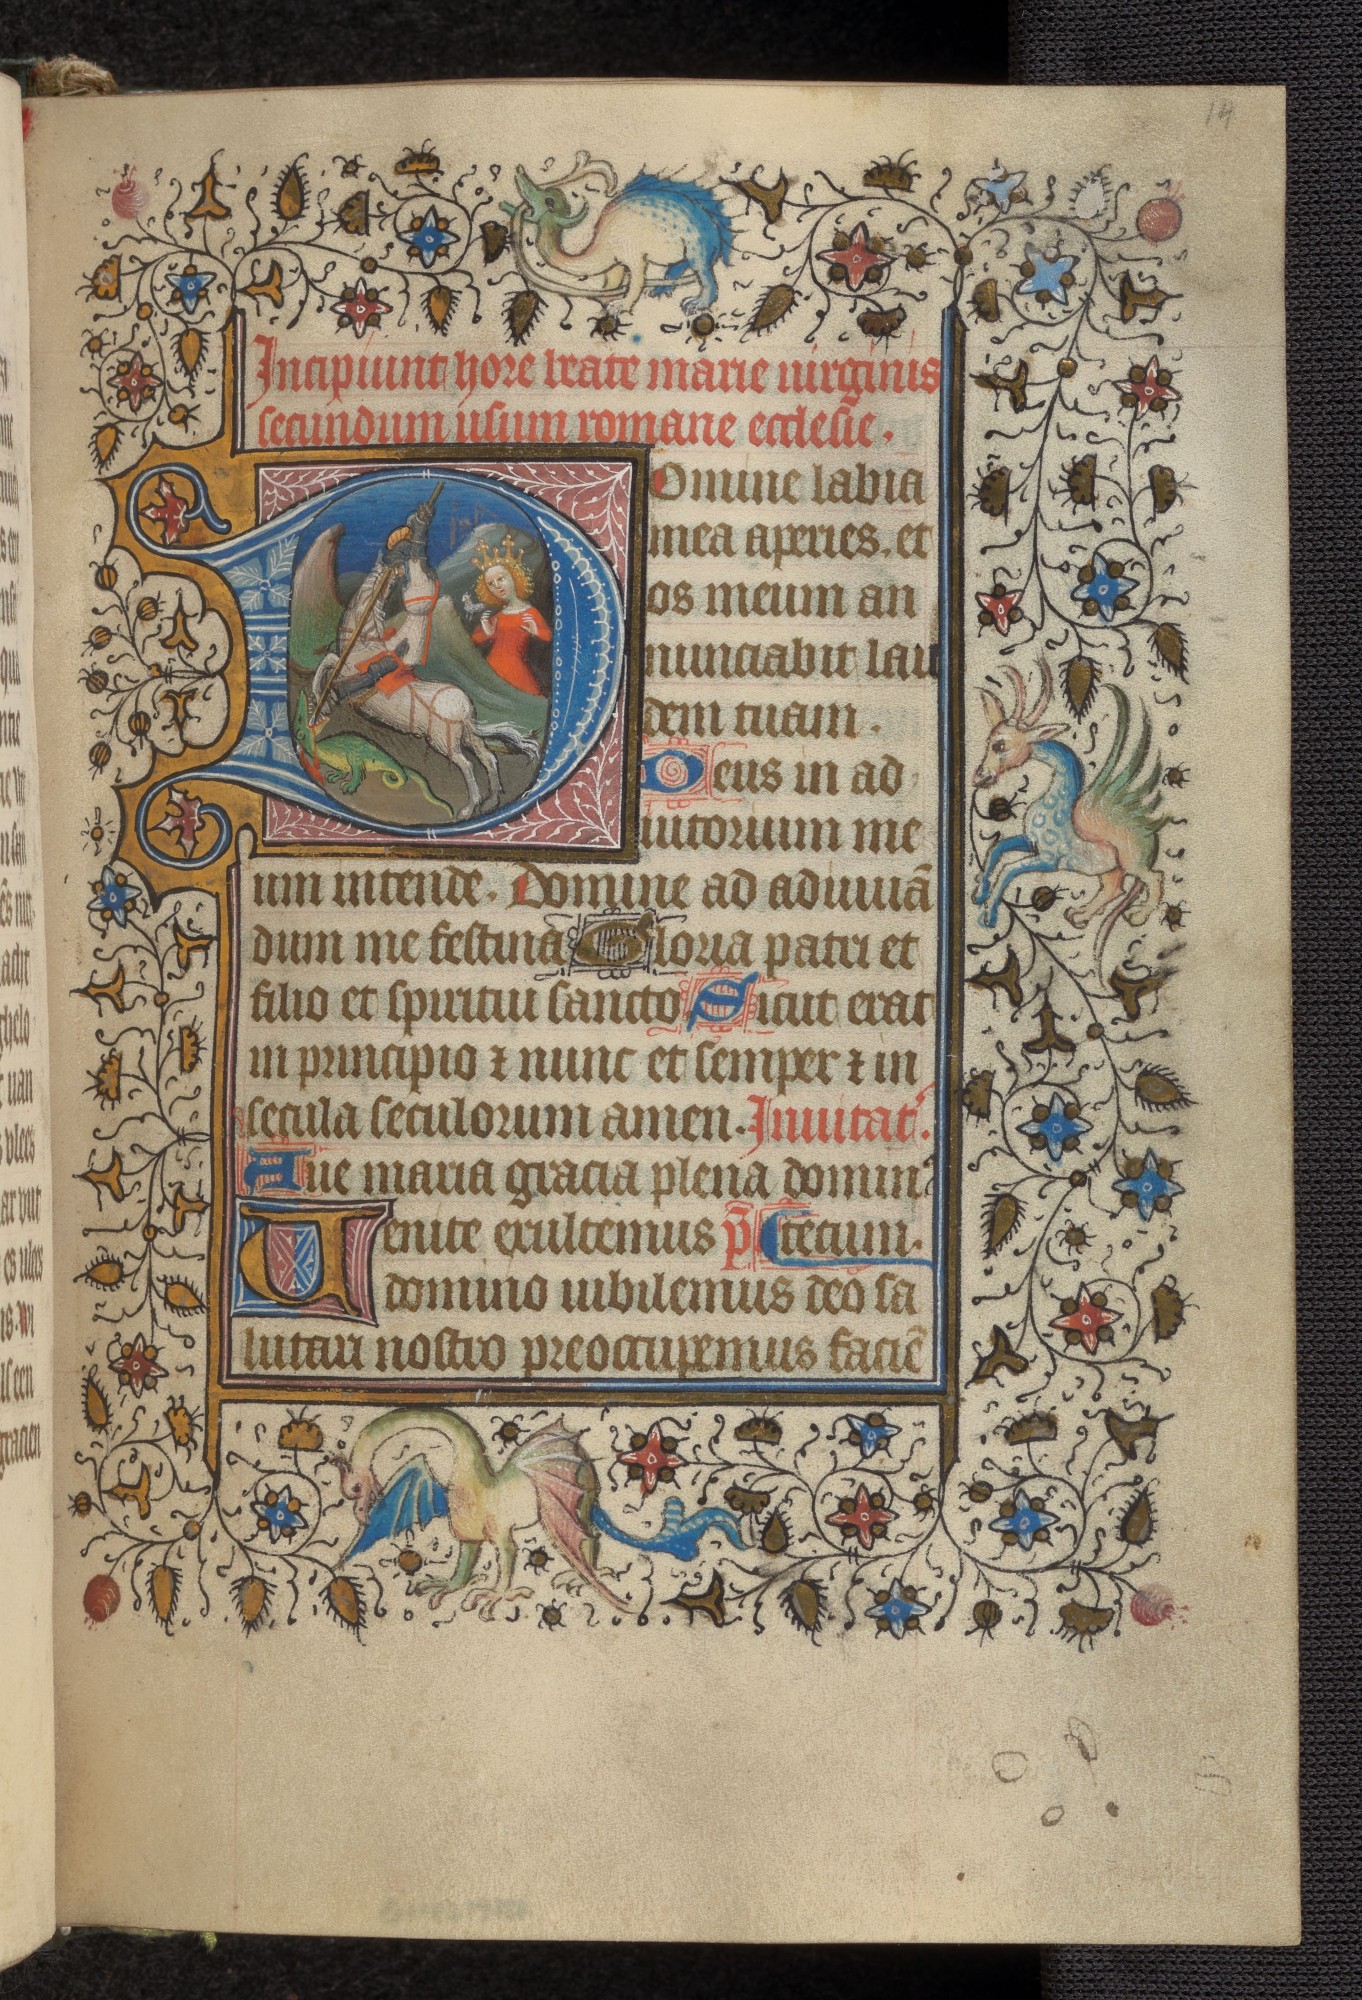 14
Incipiunt hore beate marie uirginis
secundum usum romane ecclesie.
Domine labia
mea aperies. et
os meum an
nunciabit lau
dem tuam.
Deus in ad
iutorium me
um intende. Domine ad adiuuā
dum me festina Gloria patri et
filio et spiritui sancto Sicut erat
in principio ⁊ nunc et semper ⁊ in
secula seculorum amen. Inuitat'.
Aue maria gracia plena domin'
Uenite exultemus p̄s tecum.
domino iubilemus deo sa
lutari nostro preoccupemus faciē